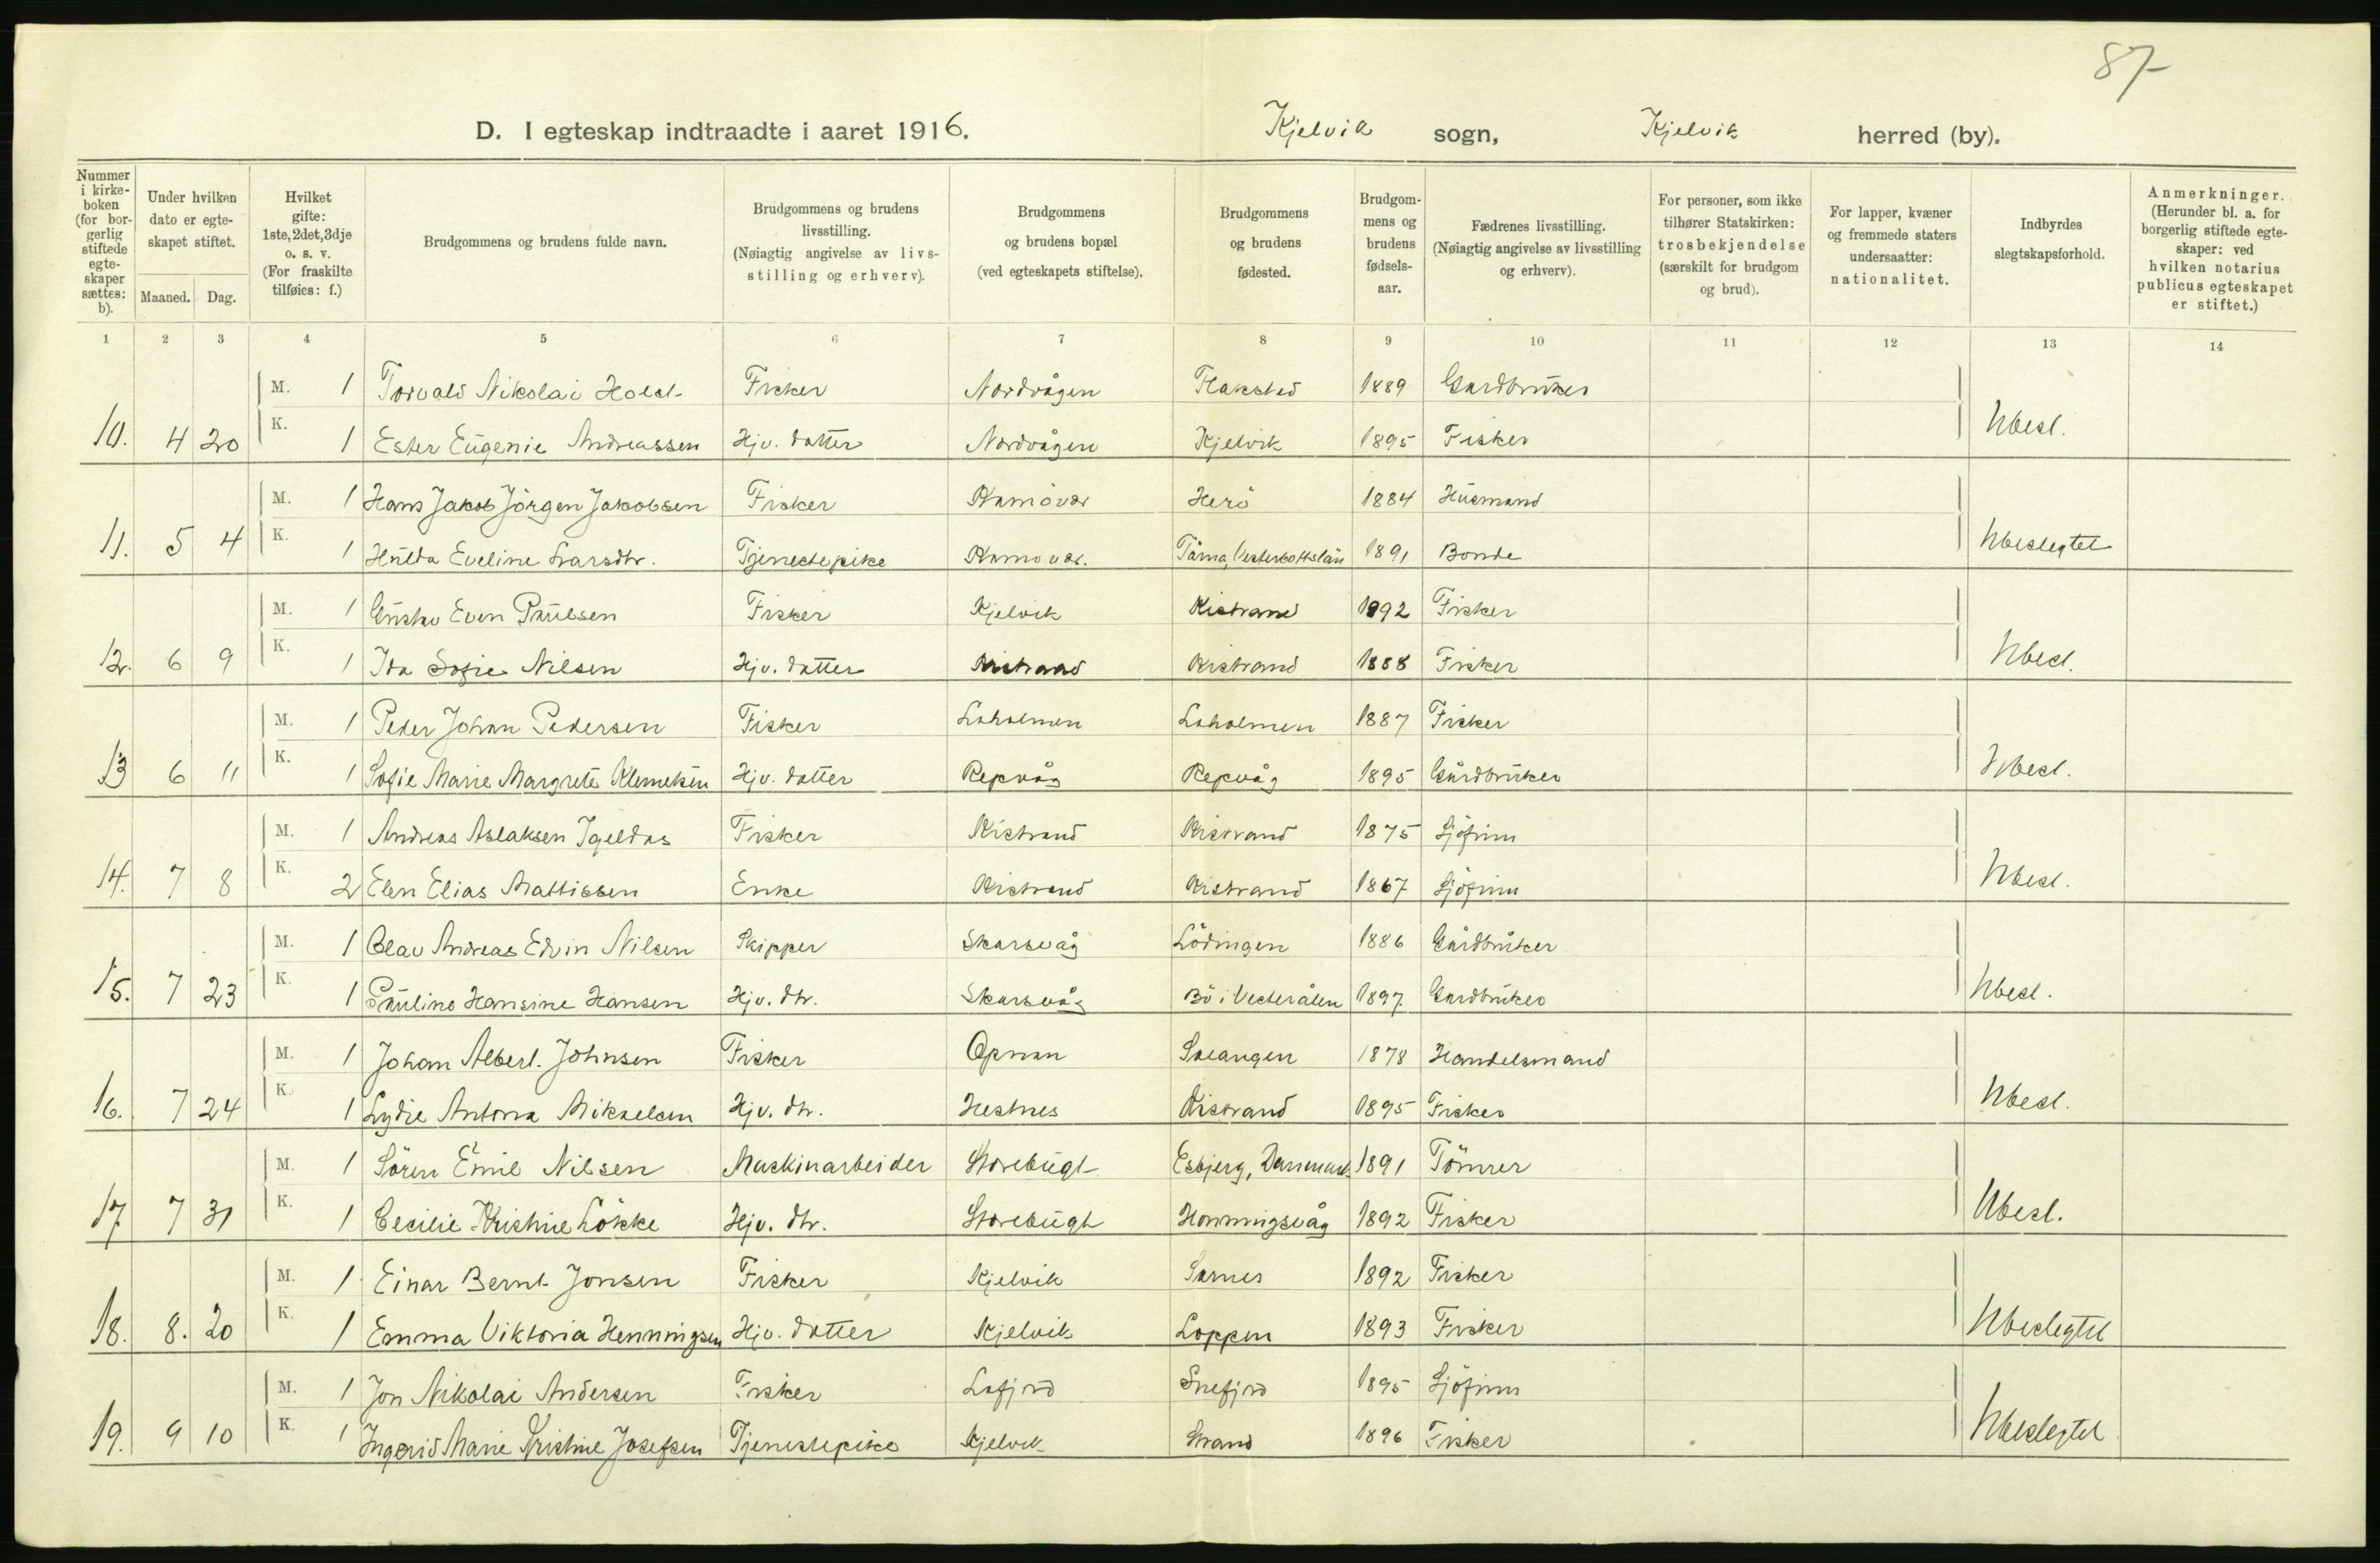 87
D. I egteskap indtraadte i aaret 1916. Kjelvik sogn, Kjelvik herred (by).
Nummer i kirke-boken (for bor-gerlig stiftede egte-skaper sættes: b).
Under hvilken dato er egte-skapet stiftet.
Maaned. Dag.
Hvilket gifte: 1ste, 2det, 3dje o. s. v. (For fraskilte tilføies: f.)
Brudgommens og brudens fulde navn.
Brudgommens og brudens livsstilling. (Nøiagtig angivelse av livs-stilling og erhverv).
Brudgommens og brudens bopæl (ved egteskapets stiftelse).
Brudgommens og brudens fødested.
Brudgom-mens og brudens fødsels-aar.
Fædrenes livsstilling. (Nøiagtig angivelse av livsstilling og erhverv).
For personer, som ikke tilhører Statskirken: trosbekjendelse (særskilt for brudgom og brud).
For lapper, kvæner og fremmede staters undersaatter: nationalitet.
Indbyrdes slegtskapsforhold.
Anmerkninger. (Herunder bl. a. for borgerlig stiftede egte-skaper: ved hvilken notarius publicus egteskapet er stiftet.)
1 2 3 4 5 6 7 8 9 10 11 12 13 14
M. 1 Torvald Nikolai Holst Fisker Nordvågen Flakstad 1889 Gårdbruker
10. 4 20 K. 1 Ester Eugenie Andreassen Hjv. datter Nordvågen Kjelvik 1895 Fisker Ubesl.
M. 1 Hans Jakob Jörgen Jakobsen Fisker Kamövær Herö 1884 Husmand
11. 5 4 K. 1 Hulda Eveline Larsdtr. Tjenestepike Kamövær. Tärna, Vesterbottslän 1891 Bonde Ubeslegtet
M. 1 Gustav Even Paulsen Fisker Kjelvik Kistrand 1892 Fisker
12. 6 9 K. 1 Ida Sofie Nilsen Hjv. datter Kistrand Kistrand 1888 Fisker Ubesl.
M. 1 Peder Johan Pedersen Fisker Loholmen Loholmen 1887 Fisker
13 6 11 K. 1 Sofie Marie Margrete Klemetsen Hjv. datter Repvåg Repvåg 1895 Gårdbruker Ubesl.
M. 1 Andreas Aslaksen Igeldas Fisker Kistrand Kistrand 1875 Sjöfinn
14. 7 8 K. 2 Elen Elias Mattissen Enke Kistrand Kistrand 1867 Sjöfinn Ubesl.
M. 1 Olav Andreas Edvin Nilsen Skipper Skarsvåg Lödingen 1886 Gårdbruker
15. 7 23 K. 1 Pauline Hansine Hansen Hjv. dtr. Skarsvåg Bö i Vesterålen 1897 Gårdbruker Ubesl.
M. 1 Johan Albert Johnsen Fisker Opnan 1878 Handelsmand
16. 7 24 K. 1 Lydie Antona Mikaelsen Hjv. dtr. Hestnes Kistrand 1895 Fisker Ubesl.
M. 1 Sören Emil Nilsen Maskinarbeider Storebugt Esbjerg, Danmark 1891 Tömrer
17. 7 31 K. 1 Cecilie Kristine Lökke Hjv. dtr. Storebugt Honningsvåg 1892 Fisker Ubesl.
M. 1 Einar Bernt Jonsen Fisker Kjelvik Sarnes 1892 Fisker
18. 8. 20 K. 1 Emma Viktoria Henningsen Hjv. datter Kjelvik Loppen 1893 Fisker Ubeslegtet
M. 1 Jon Nikolai Andersen Fisker Lafjord Snefjord 1895 Sjöfinn
19. 9 10 K. 1 Ingerid Marie Kristine Josefsen Tjenestepike Kjelvik Strand 1896 Fisker Ubeslegtet